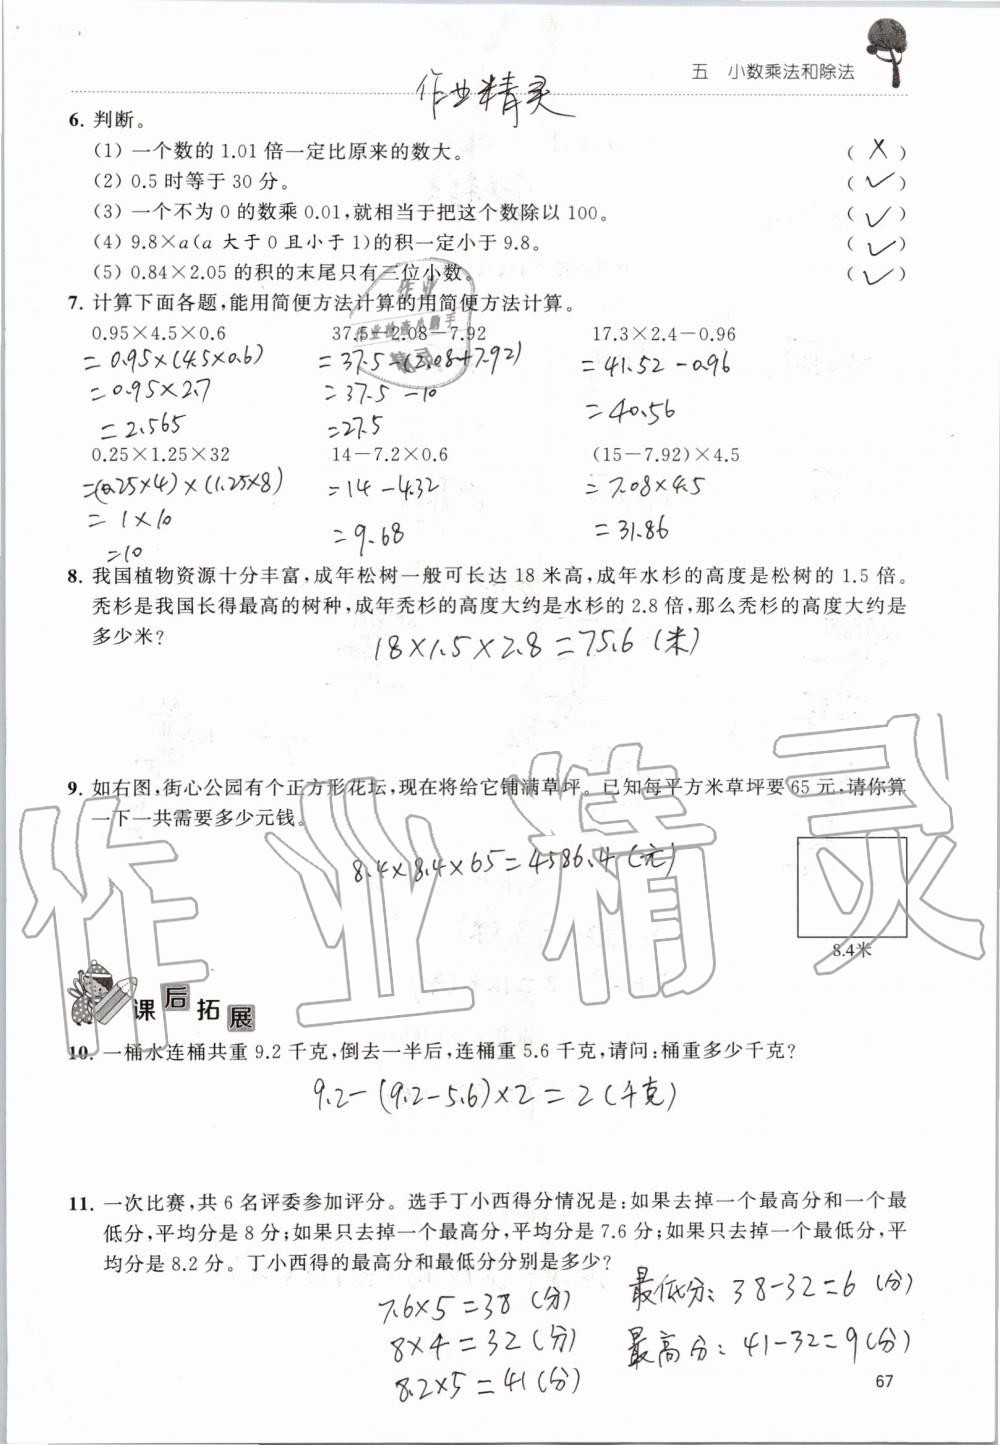 五 小数乘法和除法
作业精灵
6. 判断。
(1) 一个数的 1.01 倍一定比原来的数大。 (×)
(2) 0.5 时等于 30 分。 (✓)
(3) 一个不为 0 的数乘 0.01,就相当于把这个数除以 100。 (✓)
(4) 9.8×a(a 大于 0 且小于 1)的积一定小于 9.8。 (✓)
(5) 0.84×2.05 的积的末尾只有三位小数。 (✓)
7. 计算下面各题,能用简便方法计算的用简便方法计算。
0.95×4.5×0.6 37.5-2.08-7.92 17.3×2.4-0.96
=0.95×(4.5×0.6) =37.5-(2.08+7.92) =41.52-0.96
=0.95×2.7 =37.5-10 =40.56
=2.565 =27.5
0.25×1.25×32 14-7.2×0.6 (15-7.92)×4.5
=(0.25×4)×(1.25×8) =14-4.32 =7.08×4.5
=1×10 =9.68 =31.86
=10
8. 我国植物资源十分丰富,成年松树一般可长达 18 米高,成年水杉的高度是松树的 1.5 倍。
秃杉是我国长得最高的树种,成年秃杉的高度大约是水杉的 2.8 倍,那么秃杉的高度大约是
多少米?
18×1.5×2.8=75.6(米)
9. 如右图,街心公园有个正方形花坛,现在将给它铺满草坪。已知每平方米草坪要 65 元,请你算
一下一共需要多少元钱。
8.4×8.4×65=4586.4(元)
8.4米
作业精灵
课后拓展
10. 一桶水连桶共重 9.2 千克,倒去一半后,连桶重 5.6 千克,请问:桶重多少千克?
9.2-(9.2-5.6)×2=2(千克)
11. 一次比赛,共 6 名评委参加评分。选手丁小西得分情况是:如果去掉一个最高分和一个最
低分,平均分是 8 分;如果只去掉一个最高分,平均分是 7.6 分;如果只去掉一个最低分,平
均分是 8.2 分。丁小西得的最高分和最低分分别是多少?
7.6×5=38(分) 最低分:38-32=6(分)
8×4=32(分) 最高分:41-32=9(分)
8.2×5=41(分)
67